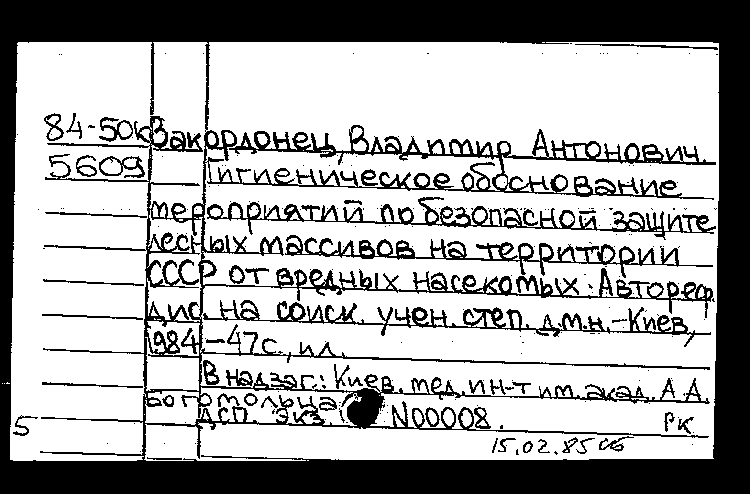 84-50к Закордонец, Владимир Антонович.
5609 Гигиеническое обоснование
мероприятий по безопасной защите
лесных массивов на территории
СССР от вредных насекомых: Автореф.
дис. на соиск. учен. степ. д.м.н.-Киев,
1984.-47с., ил.
В надзаг.: Киев. мед. ин-т им. акад. А.А.
Богомольца
ДСП. Экз. N00008. РК
5
15.02.85 сб